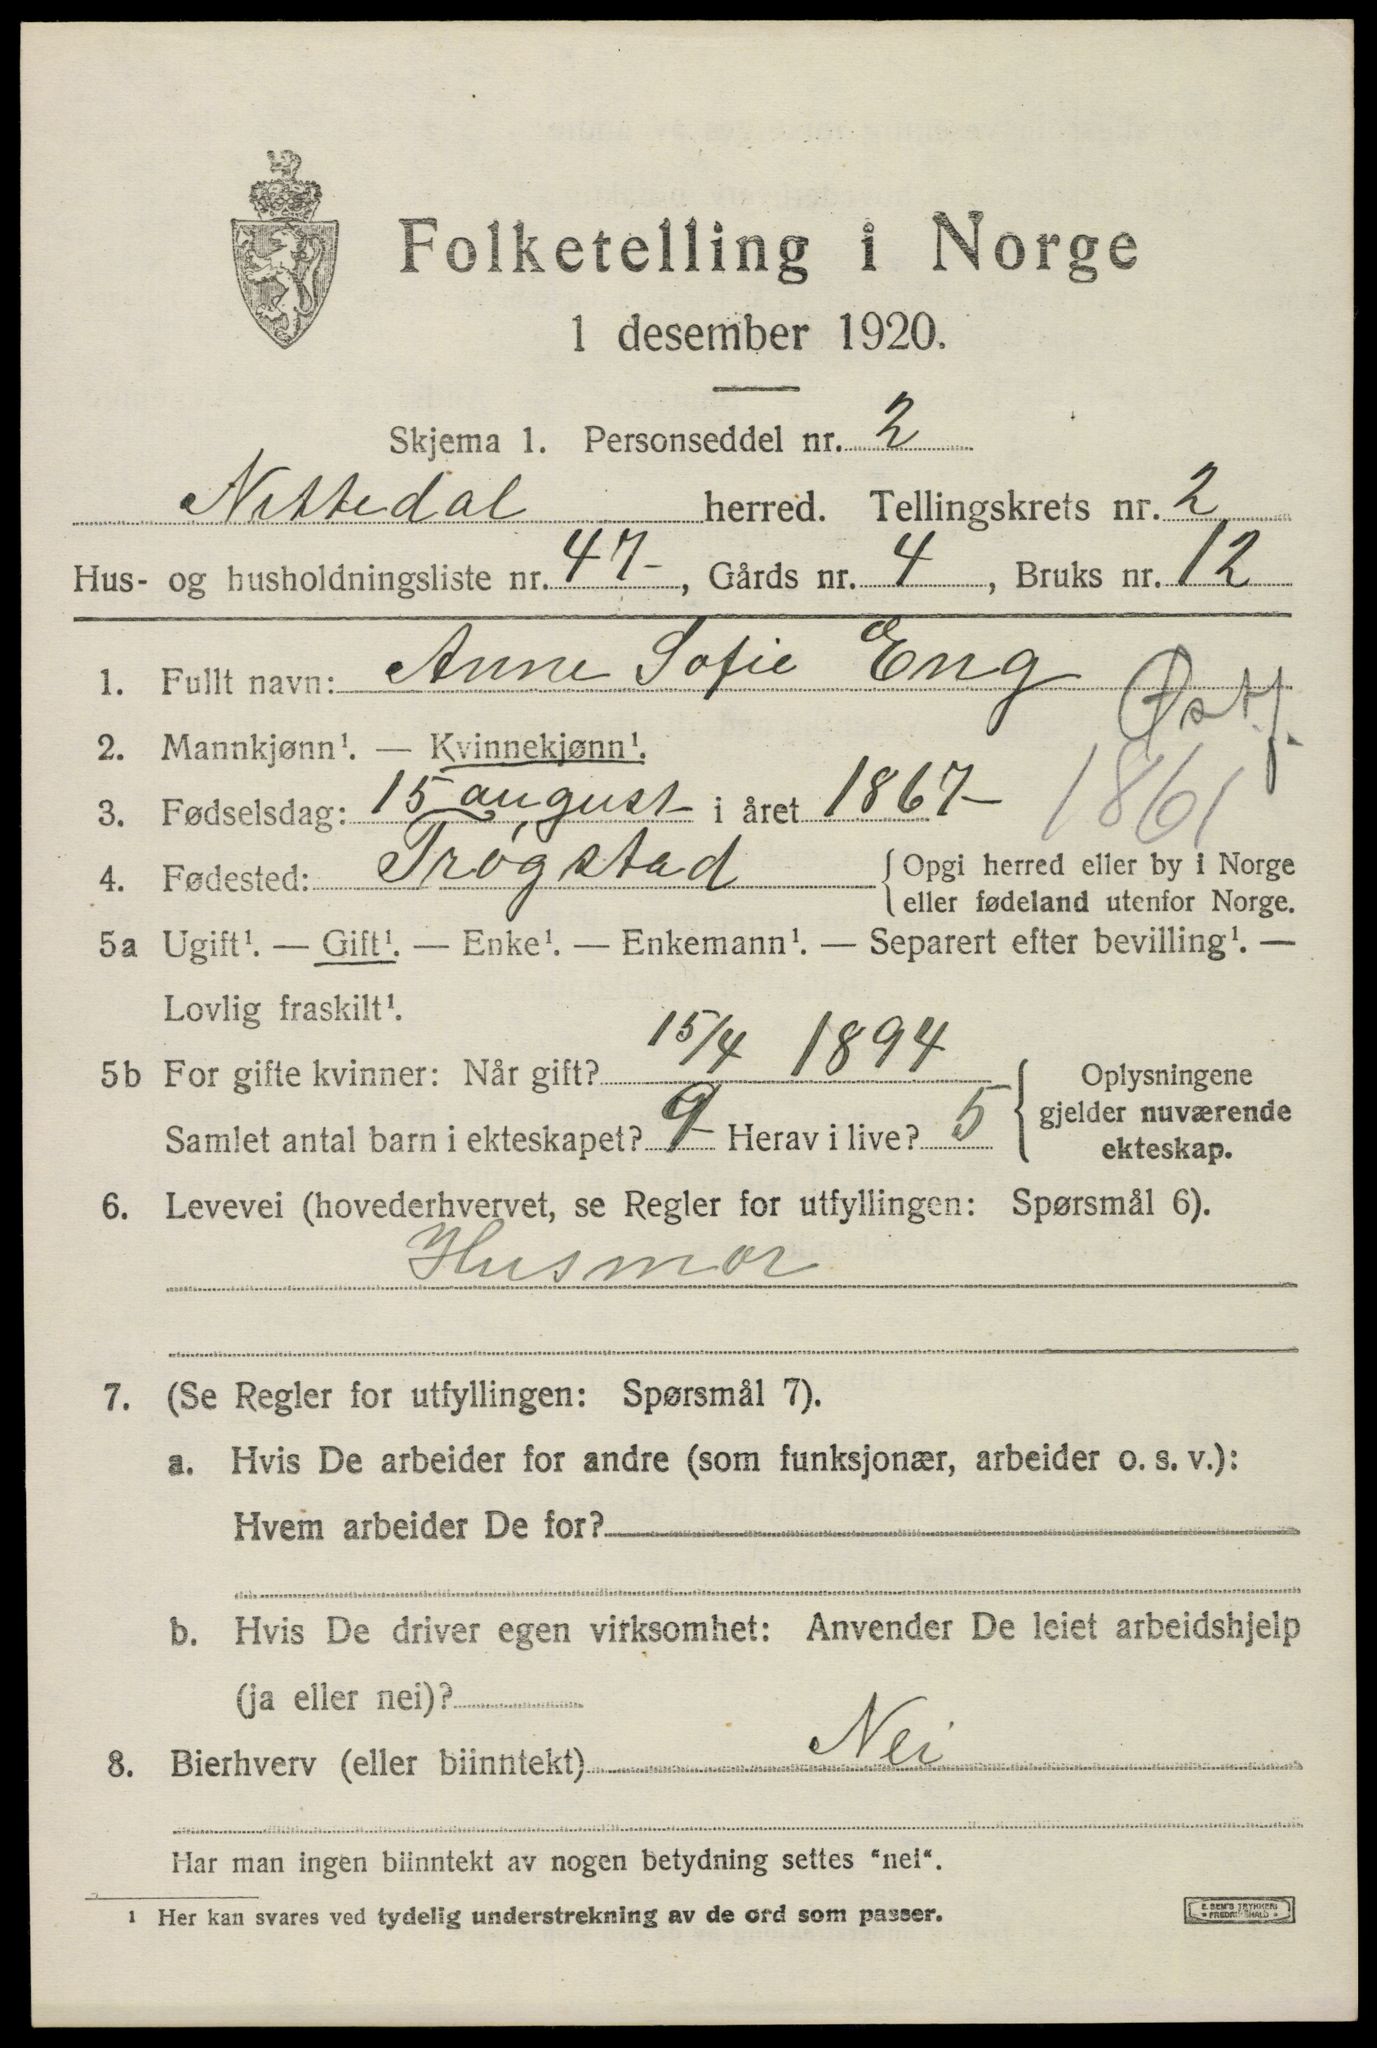 Folketelling i Norge
1 desember 1920.
Skjema 1. Personseddel nr. 2
Nittedal herred. Tellingskrets nr. 2
Hus- og husholdningsliste nr. 47-, Gårds nr. 4, Bruks nr. 12
1. Fullt navn: Anne Sofie Eng
Østf.
2. Mannkjønn¹. — Kvinnekjønn¹.
3. Fødselsdag: 15 august i året 1867-
1861
4. Fødested: Trøgstad {Opgi herred eller by i Norge
eller fødeland utenfor Norge.
5a Ugift¹. — Gift¹. — Enke¹. — Enkemann¹. — Separert efter bevilling¹. —
Lovlig fraskilt¹.
5b For gifte kvinner: Når gift? 15/4 1894
Samlet antal barn i ekteskapet? 9 Herav i live? 5
{Oplysningene
gjelder nuværende
ekteskap.
6. Levevei (hovederhvervet, se Regler for utfyllingen: Spørsmål 6).
Husmor
7. (Se Regler for utfyllingen: Spørsmål 7).
a. Hvis De arbeider for andre (som funksjonær, arbeider o. s. v.):
Hvem arbeider De for?
b. Hvis De driver egen virksomhet: Anvender De leiet arbeidshjelp
(ja eller nei)?
8. Bierhverv (eller biinntekt) Nei
Har man ingen biinntekt av nogen betydning settes "nei".
¹ Her kan svares ved tydelig understrekning av de ord som passer.
E. SEM'S TRYKKERI
FREDRIKSHALD